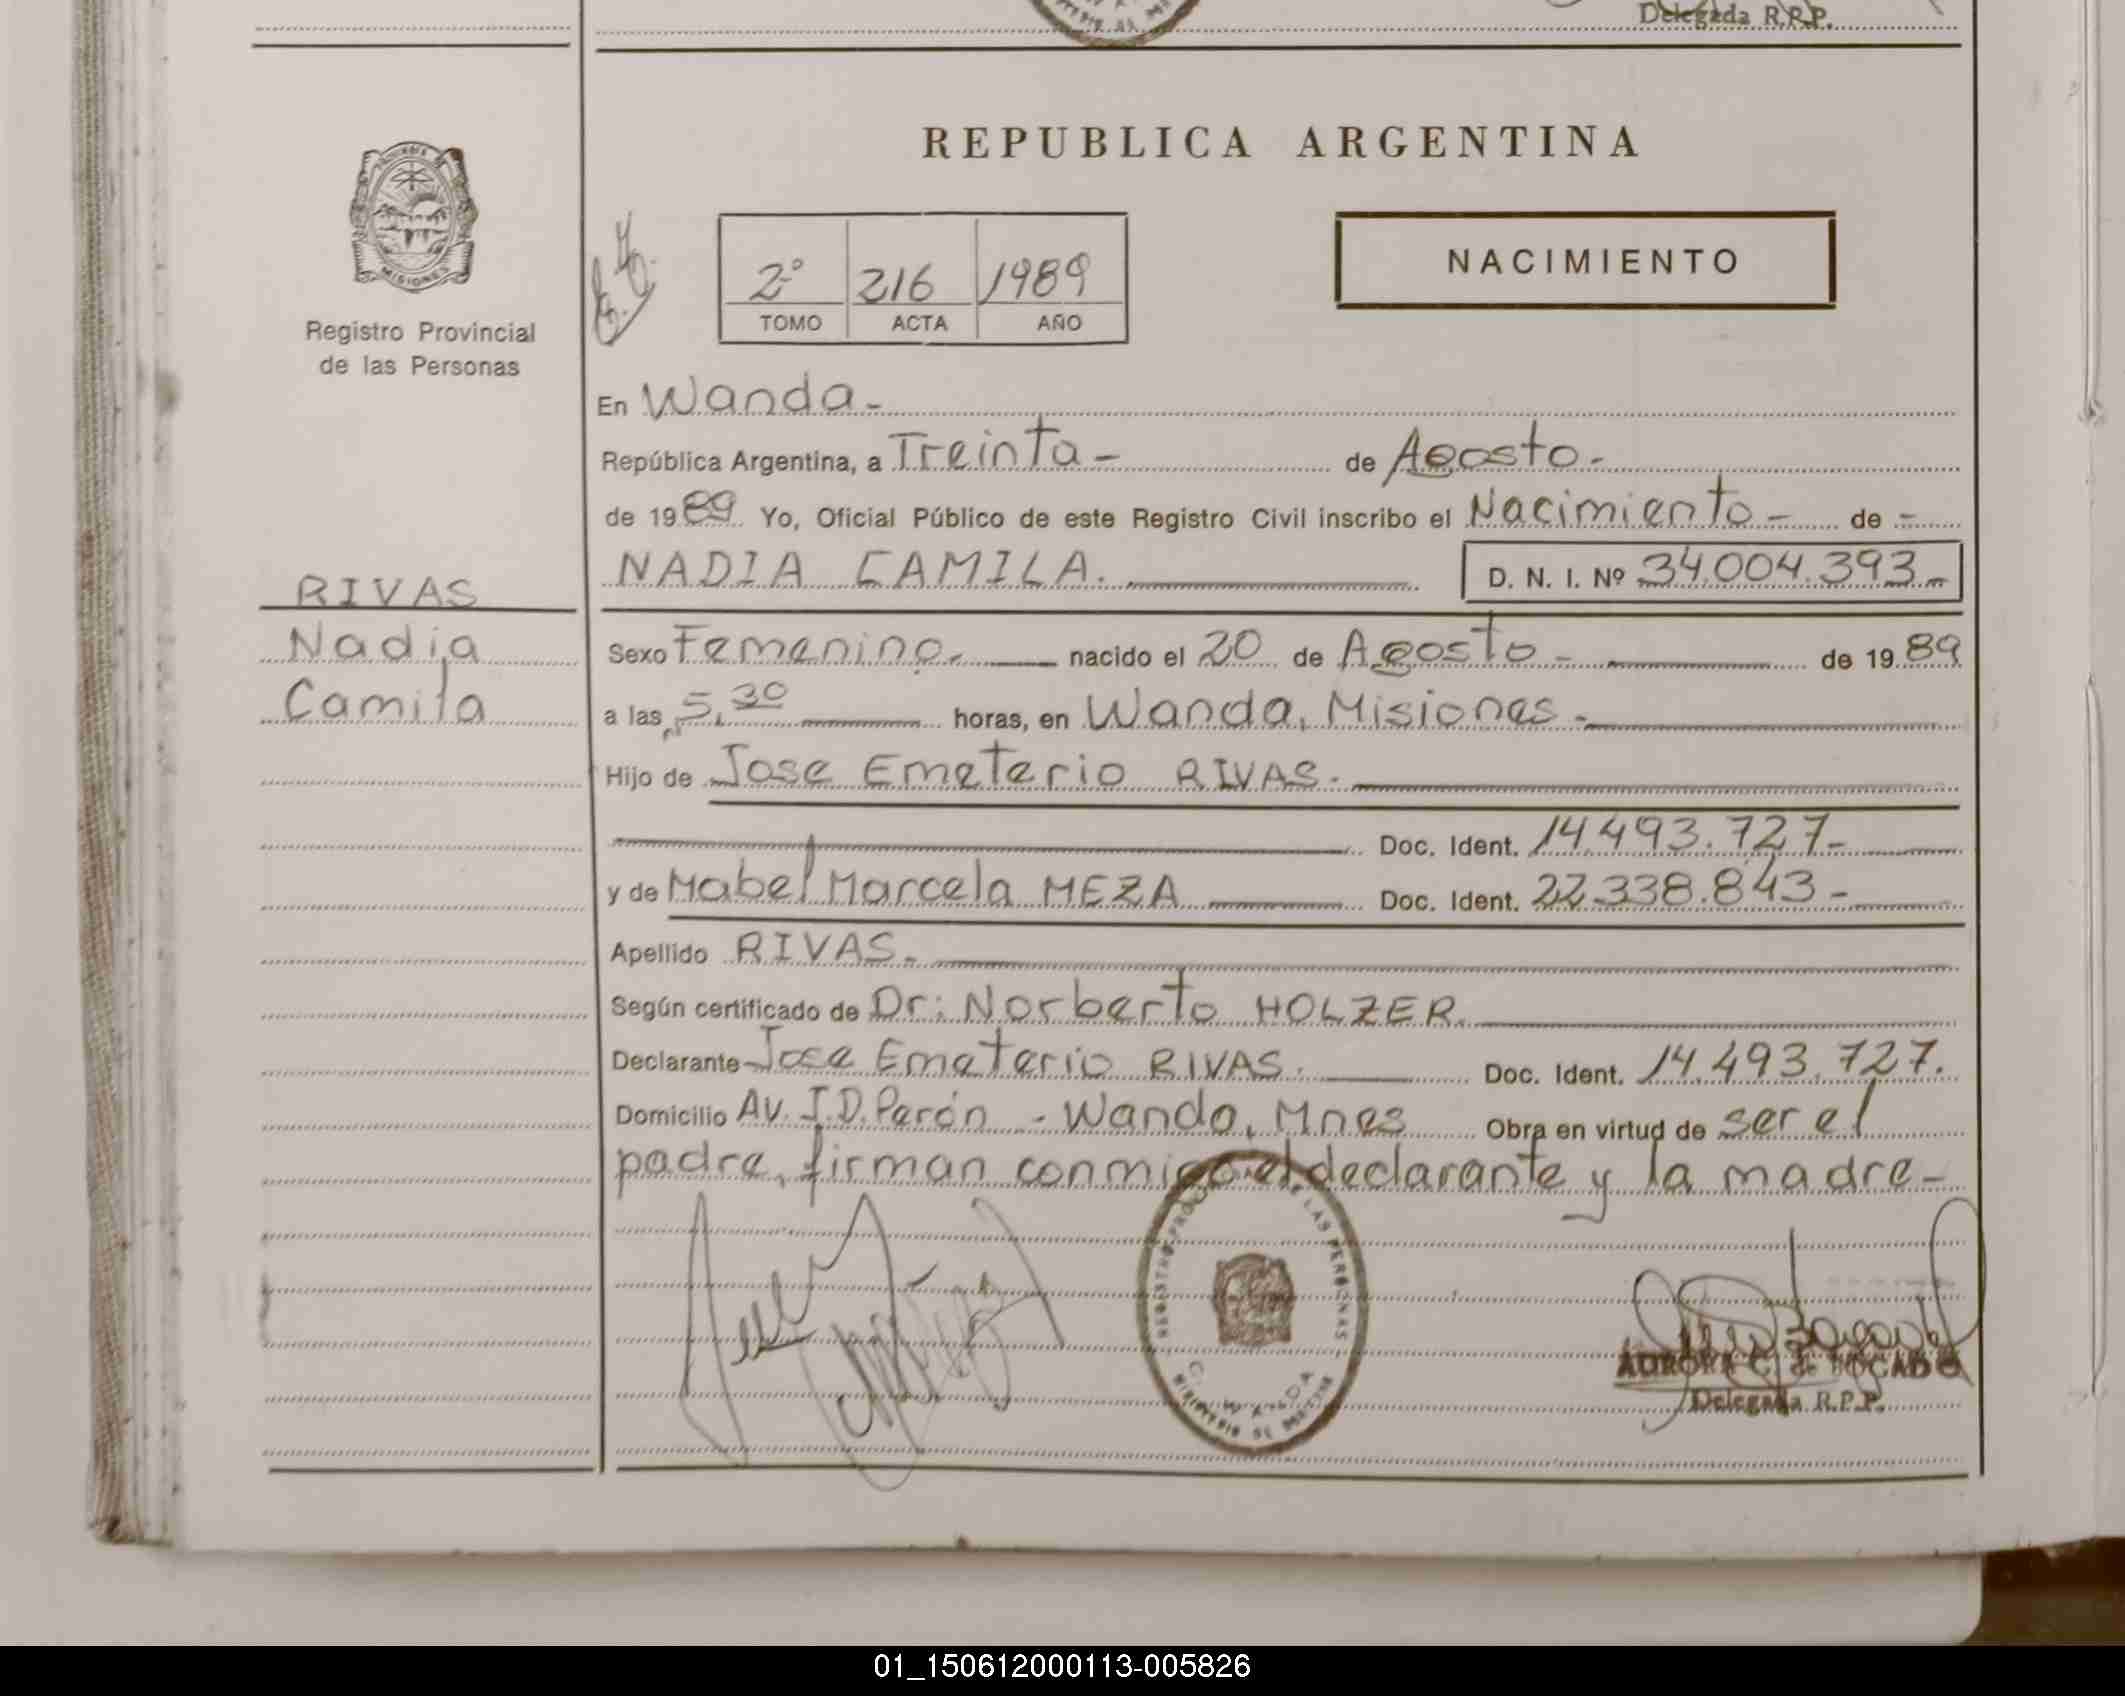 Delegada R.R.P.
REPUBLICA ARGENTINA
PROVINCIA DE
MISIONES
Registro Provincial
de las Personas
2º 216 1989
TOMO ACTA AÑO
NACIMIENTO
En Wanda-
República Argentina, a Treinta- de Agosto-
de 1989 Yo, Oficial Público de este Registro Civil inscribo el Nacimiento- de -
NADIA CAMILA. D. N. I. Nº 34.004.393-
RIVAS
Nadia
Camila
Sexo Femenino. nacido el 20 de Agosto- de 1989
a las 5,30 horas, en Wanda, Misiones-
Hijo de Jose Emeterio RIVAS.
Doc. Ident. 14.493.727-
y de Mabel Marcela MEZA Doc. Ident. 22.338.843-
Apellido RIVAS.
Según certificado de Dr: Norberto HOLZER.
Declarante Jose Emeterio RIVAS. Doc. Ident. 14.493.727.
Domicilio Av. J.D.Perón - Wanda, Mnes Obra en virtud de ser el
padre, firman conmigo el declarante y la madre-
REGISTRO DE LAS PERSONAS
WANDA
AURORA C. de BOGADO
Delegada R.P.P.
01_150612000113-005826